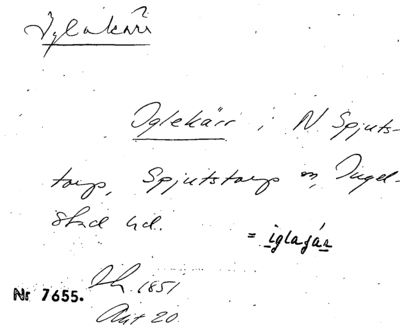 Iglakärr
Iglekärr i N. Spjuts-
torp, Spjutstorps sn, Ingel-
stad hd.
= iglaꞬár
Nr 7655.
1851
Akt 20